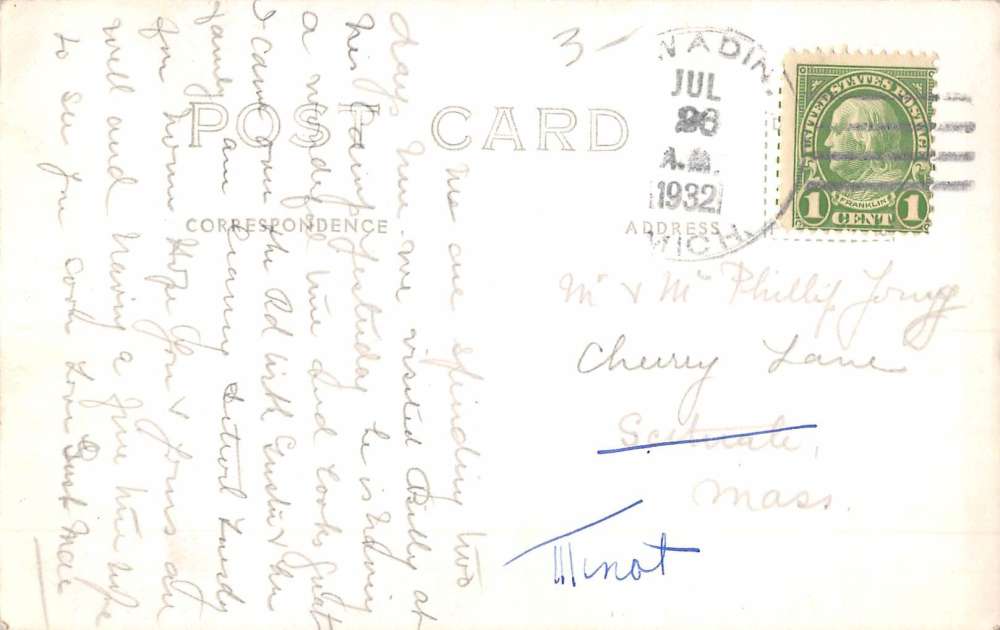 POST CARD
CORRESPONDENCE
ADDRESS
JUL
A.M.
1932
MICH.
UNITED STATES POSTAGE
FRANKLIN
1 CENT 1
We are spending two
days here. we visited Billy at
his Camp yesterday he is having
a wonderful time and looks great
I came down the Rd with &
family am leaving Detroit Tuesday
for home Hope you & yours are
well and having a fine time hope
to see you soon Love Aunt Mae
Mr & Mrs Phillip Young
Cherry Lane
Scituate,
Mass.
Minot